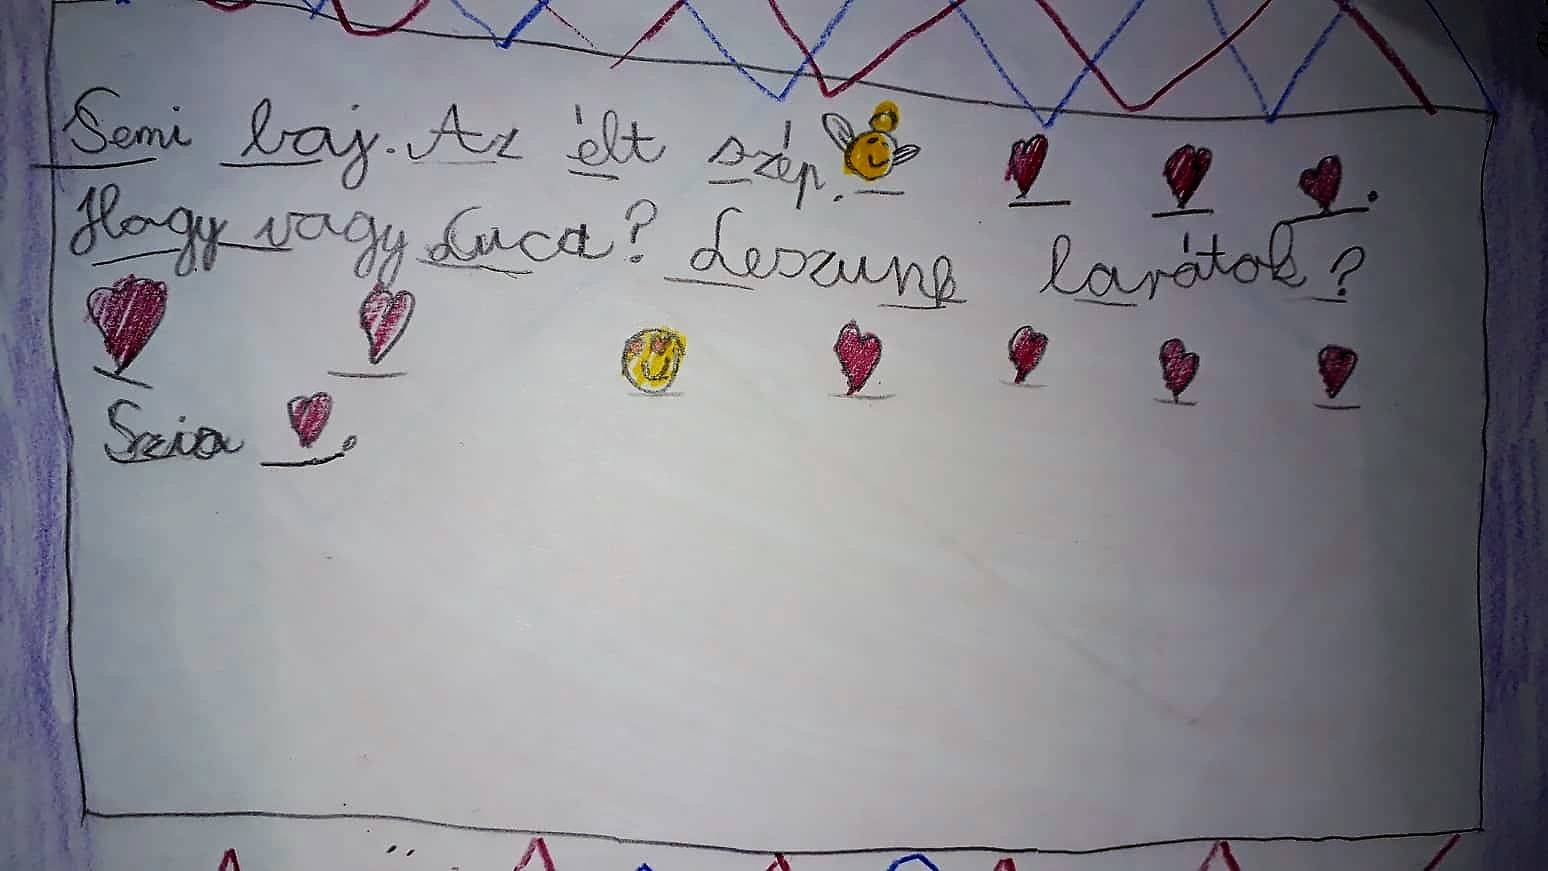 Semi baj. Az élt szép.
Hogy vagy Luca? Leszunk larátok?
Szia